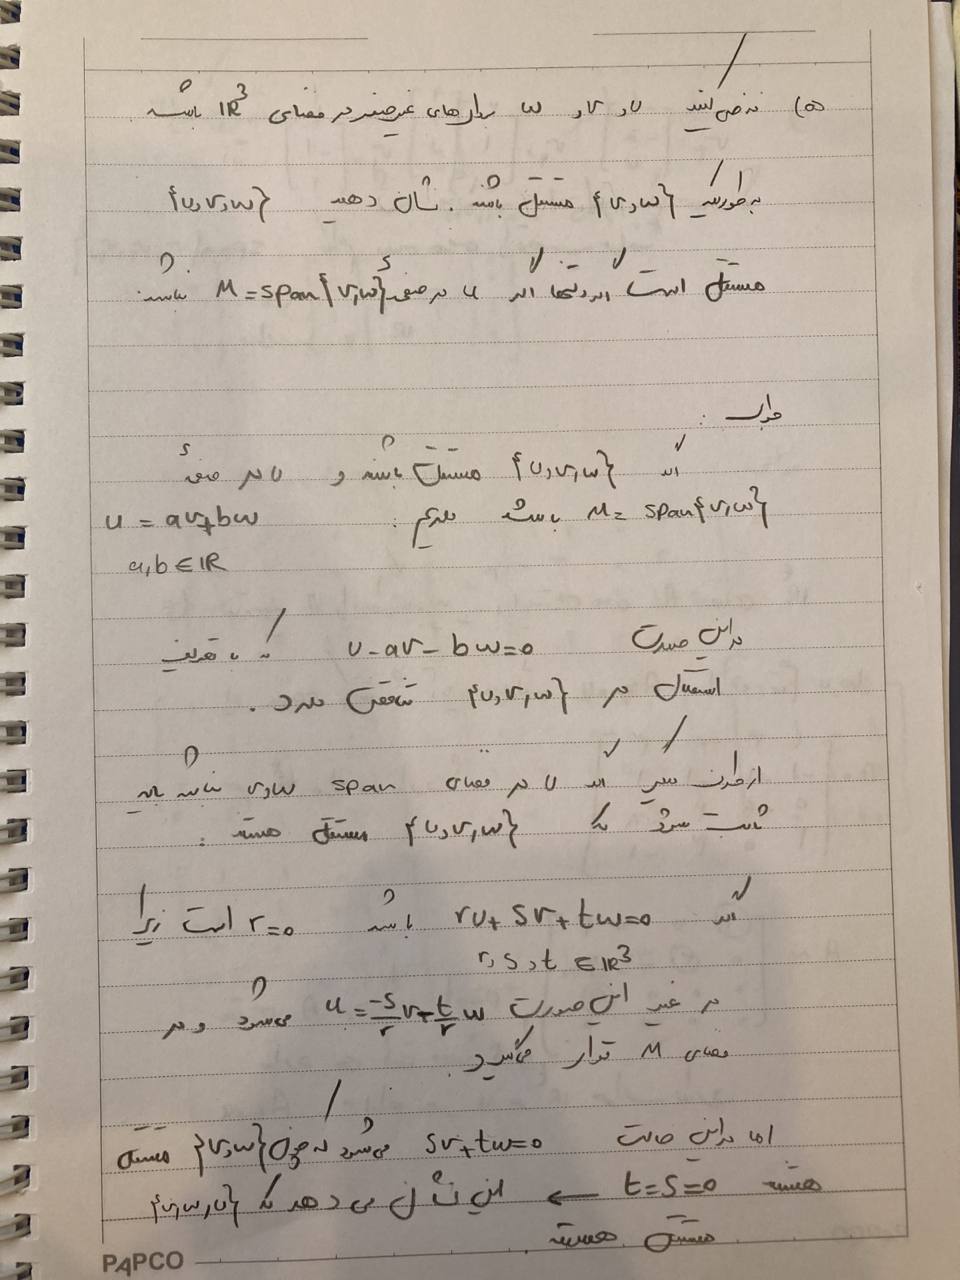 ۵) فرض کنید u و v و w بردارهای غیرصفر در فضای IR³ باشند
به طوریکه {v,w} مستقل باشند. نشان دهید {u,v,w}
مستقل است اگر و تنها اگر u در صفحهٔ M = span{v,w} نباشد.
جواب :
اگر {u,v,w} مستقل باشند و u در صفحهٔ
M = span{v,w} باشد داریم : u = av+bw
a,b ∈ IR
در این صورت u-av-bw=0 که با تعریف
استقلال در {u,v,w} تناقض دارد.
از طرف دیگر اگر u در فضای span v,w نباشد باید
ثابت شود که {u,v,w} مستقل هستند :
اگر ru+sv+tw=0 باشد r=0 است زیرا
r,s,t ∈ IR³
در غیر این صورت u = -s/r v + t/r w می‌شود و در
فضای M قرار می‌گیرد.
اما در این حالت sv+tw=0 می‌شود که چون {v,w} مستقل
هستند t=s=0 ← این نشان می دهد که {u,v,w}
مستقل هستند
PAPCO